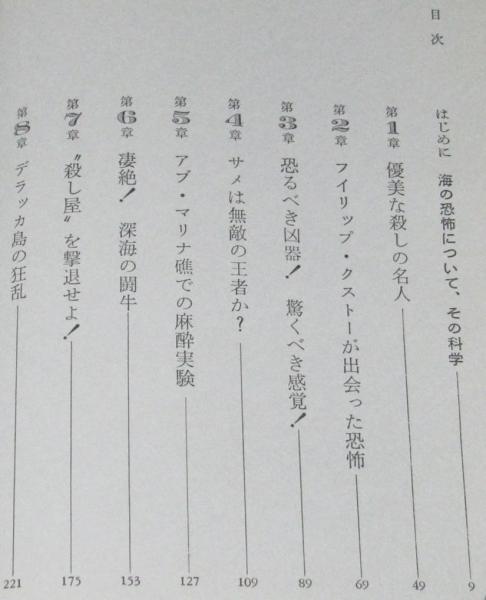 目次
はじめに 海の恐怖について、その科学 9
第1章 優美な殺しの名人 49
第2章 フイリップ・クストーが出会った恐怖 69
第3章 恐るべき凶器! 驚くべき感覚! 89
第4章 サメは無敵の王者か? 109
第5章 アブ・マリナ礁での麻酔実験 127
第6章 凄絶! 深海の闘牛 153
第7章 〝殺し屋〟を撃退せよ! 175
第8章 デラッカ島の狂乱 221